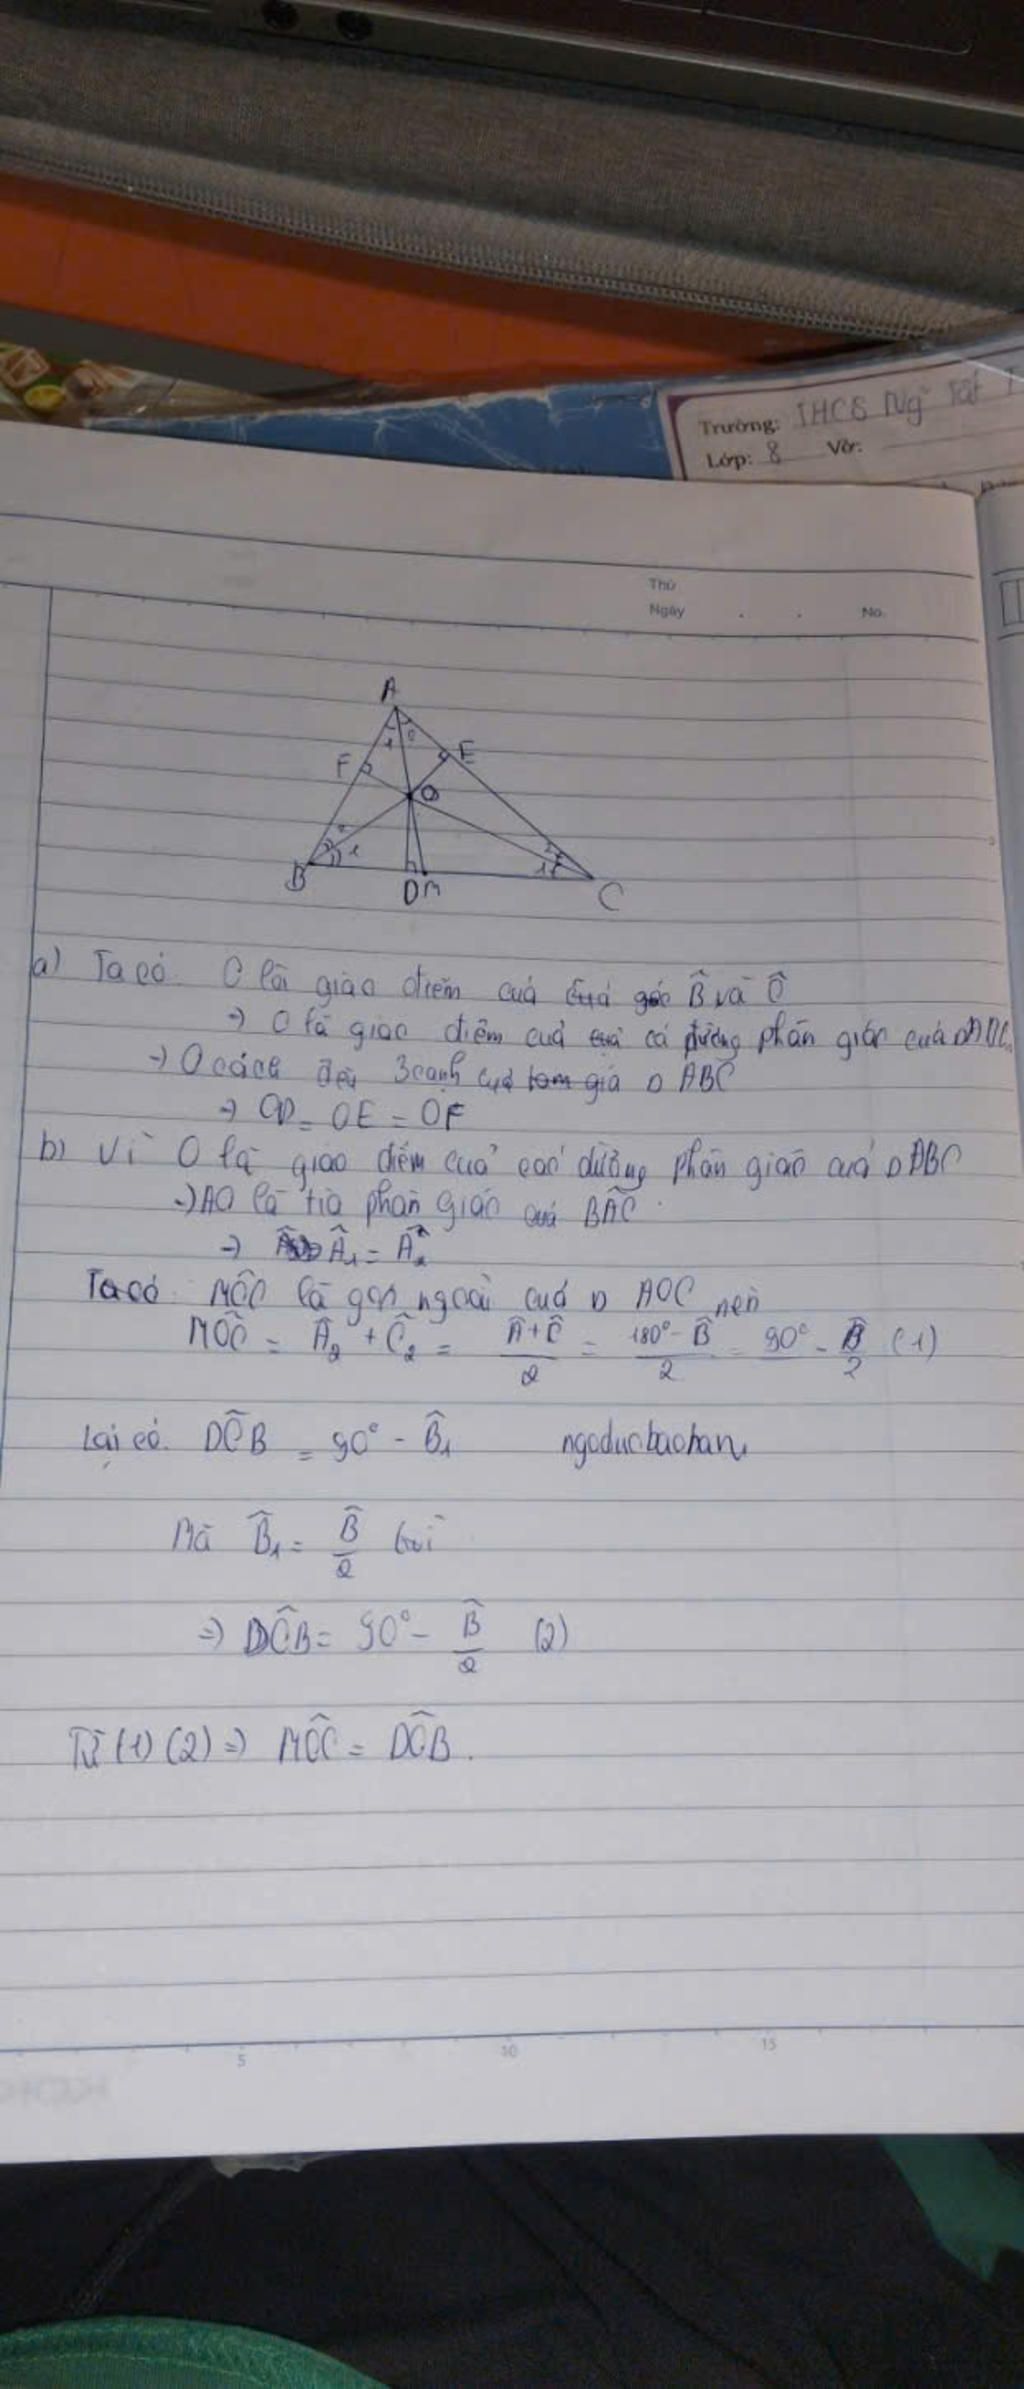 Trường: THCS Ngô Tất T
Lớp: 8 Vở:
Thứ
Ngày . . No.
A
1 2
F E
O
2 1
2 1
B D M C
a) Ta có O là giao điểm của góc B̂ và Ĉ
→ O là giao điểm của cá đường phân giác của Δ ABC
→ O cách đều 3 cạnh của Δ ABC
→ OD = OE = OF
b) Vì O là giao điểm của các đường phân giác của Δ ABC
→ AO là tia phân giác của BÂC
→ Â₁ = Â₂
Ta có MÔC là góc ngoài của Δ AOC nên
MÔC = Â₂ + Ĉ₂ = (Â + Ĉ)/2 = (180° - B̂)/2 = 90° - B̂/2 (1)
Lại có DÔB = 90° - B̂₁ ngoducbaohan
Mà B̂₁ = B̂/2
⇒ DÔB = 90° - B̂/2 (2)
Từ (1) (2) ⇒ MÔC = DÔB.
5 10 15